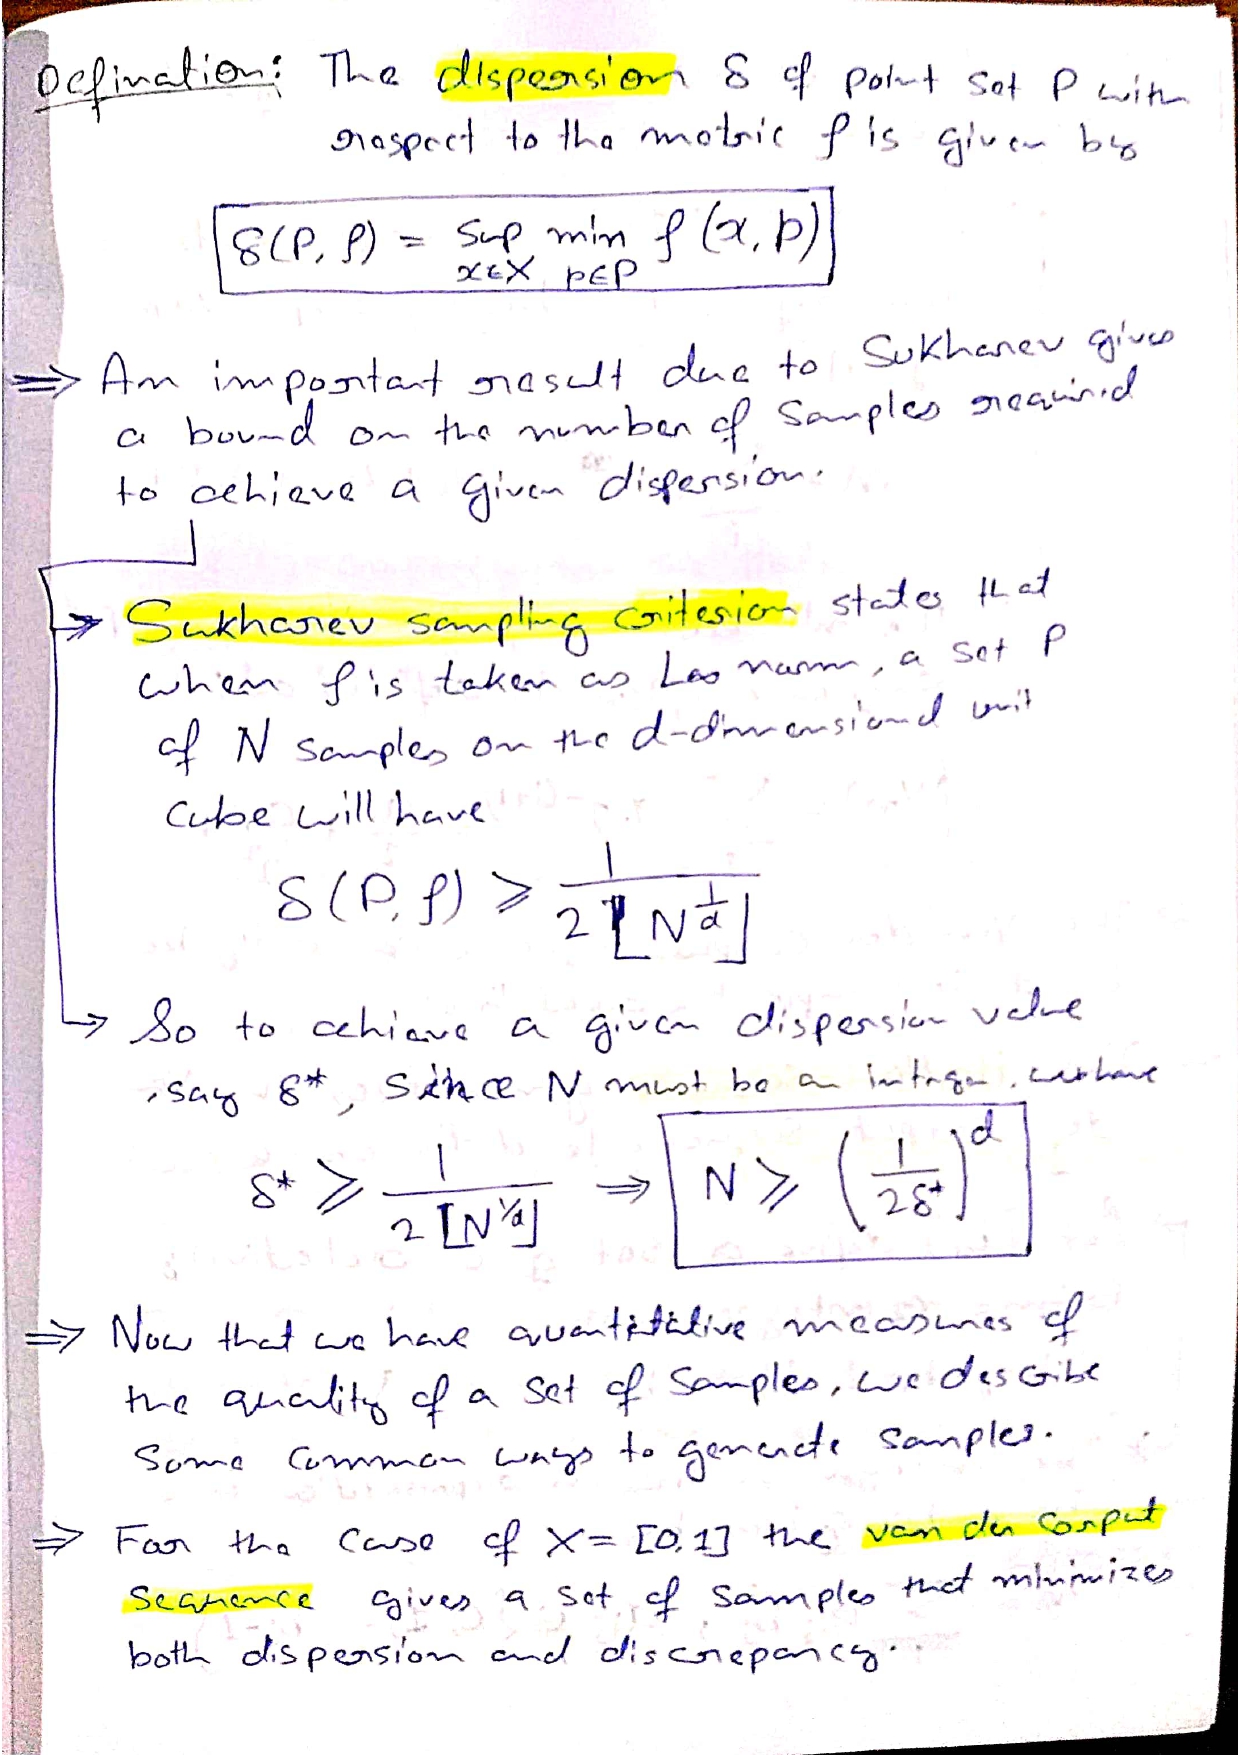 Defination: The dispersion δ of point set P with
respect to the metric ρ is given by
δ(P, ρ) = sup min ρ(x, p)
x∈X p∈P
⇒ An important result due to Sukharev gives
a bound on the number of samples required
to achieve a given dispersion.
→ Sukharev sampling criterion states that
when ρ is taken as L∞ norm, a set P
of N samples on the d-dimensional unit
cube will have
δ(P, ρ) ⩾ 1 / 2⌊N^(1/d)⌋
→ So to achieve a given dispersion value
say δ*, Since N must be an integer, we have
δ* ⩾ 1 / 2⌊N^(1/d)⌋ ⇒ N ⩾ (1 / 2δ*)^d
⇒ Now that we have quantitative measures of
the quality of a set of samples, we describe
some common ways to generate samples.
⇒ For the case of X = [0,1] the van der Corput
sequence gives a set of samples that minimizes
both dispersion and discrepancy.